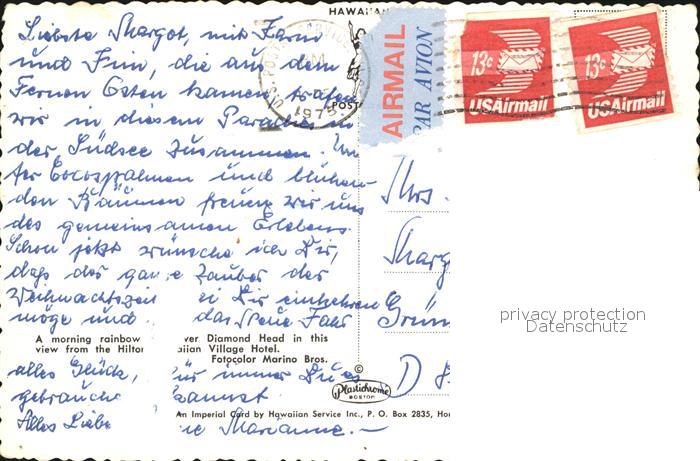 HAWAIIAN
Liebste Margot, mit
und Finn, die aus dem
Fernen Osten kamen, trafen
wir in diesem Paradies in
der Südsee zusammen. Un-
ter Cocospalmen und blühen-
den Bäumen freuen wir uns
des gemeinsamen Erlebens.
Schon jetzt wünsche ich Dir,
daß der gan e Zauber der
Weihnachtszeit ei Dir einkehren
möge und das Neue Jahr
A morning rainbow ver Diamond Head in this
view from the Hilton aiian Village Hotel.
Fotocolor Marino Bros.
alles Glück, ür immer
gebrauche kannst
Alles Liebe ne Marianne.—
An Imperial Card by Hawaiian Service Inc., P. O. Box 2835, Hon
©
Plastichrome
BOSTON
POST
1975
AIRMAIL
PAR AVION
13c
USAirmail
13c
USAirmail
Mrs.
Marg
Grün
D 8
privacy protection
Datenschutz